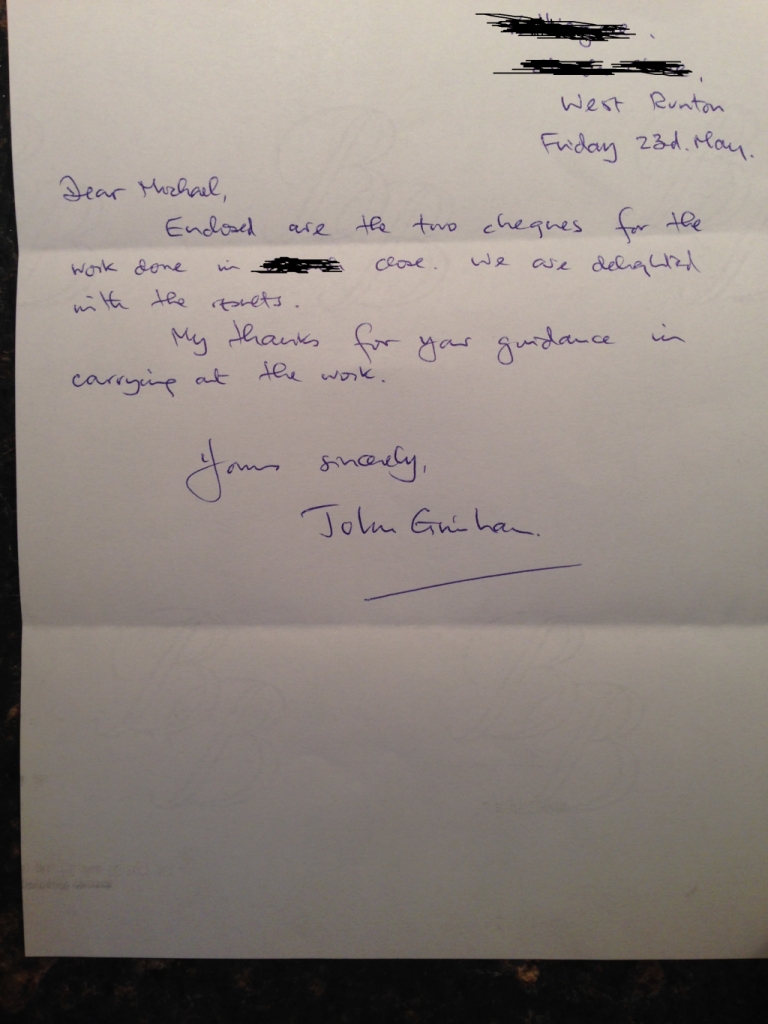 West Runton
Friday 23rd. May.
Dear Michael,
Enclosed are the two cheques for the
work done in close. We are delighted
with the results.
My thanks for your guidance in
carrying out the work.
Yours sincerely,
John